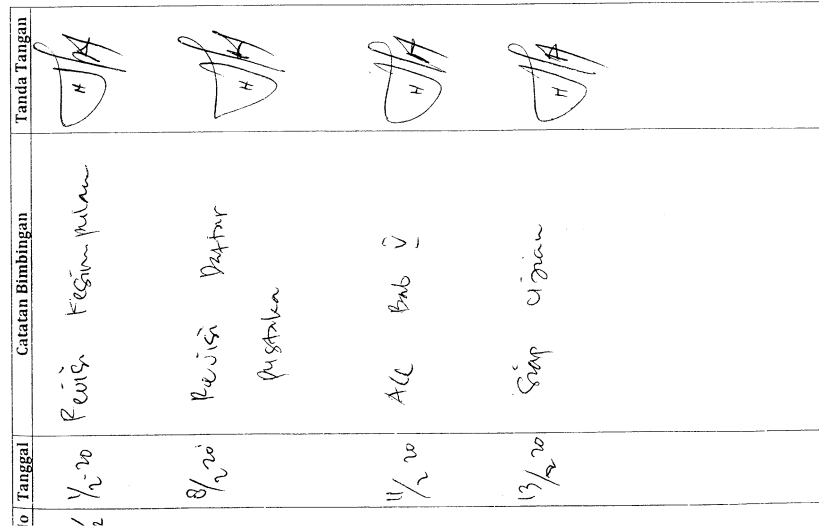 No Tanggal Catatan Bimbingan Tanda Tangan
1/2-20 Revisi Kesimpulan
8/2 20 Revisi Daftar
Pustaka
11/2 20 Acc Bab V
13/2 20 Siap Ujian